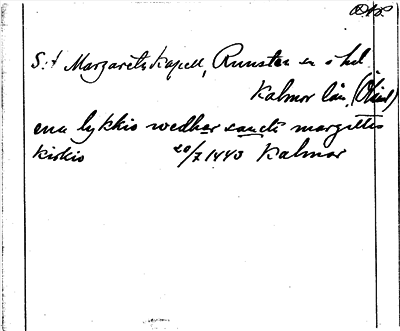 S:t Margarets kapell, Runsten sn o hd
Kalmar län (Öland)
ena lykkio wedher sancte margittis
kirkio 20/7 1443 Kalmar